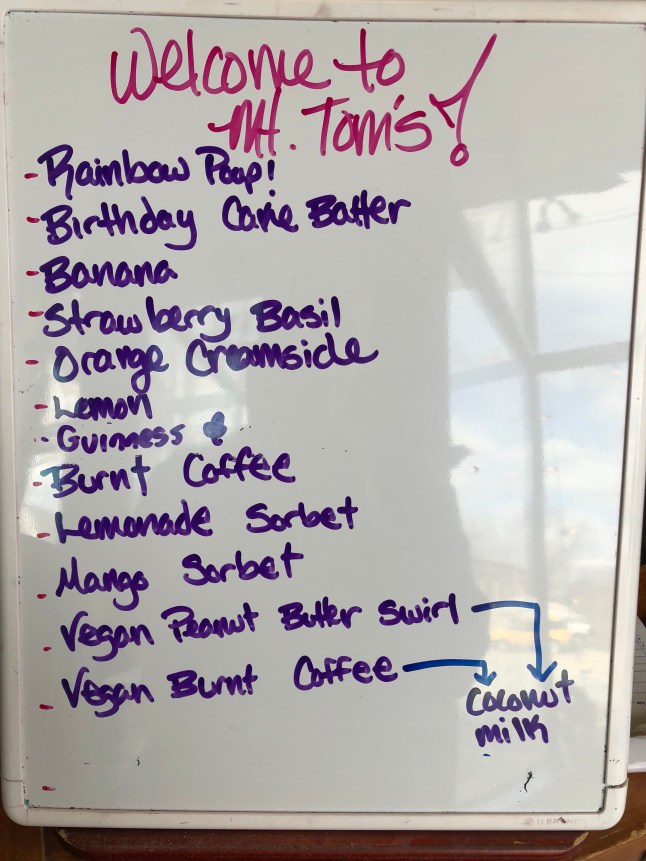 Welcome to
Mt. Tom's!
- Rainbow Poop!
- Birthday Cake Batter
- Banana
- Strawberry Basil
- Orange Creamsicle
- Lemon
- Guinness
- Burnt Coffee
- Lemonade Sorbet
- Mango Sorbet
- Vegan Peanut Butter Swirl
- Vegan Burnt Coffee
Coconut
milk